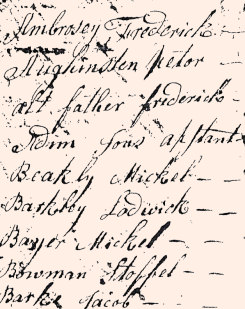 Ambrosey Frederick –
Aughinsten petor –
alt father fridrick –
Adm Sons apstant
Beakly Mickel – –
Barkby Lodwick – –
Bayer Mickel – –
Bowman Stoffel – –
Barke Jacob – –